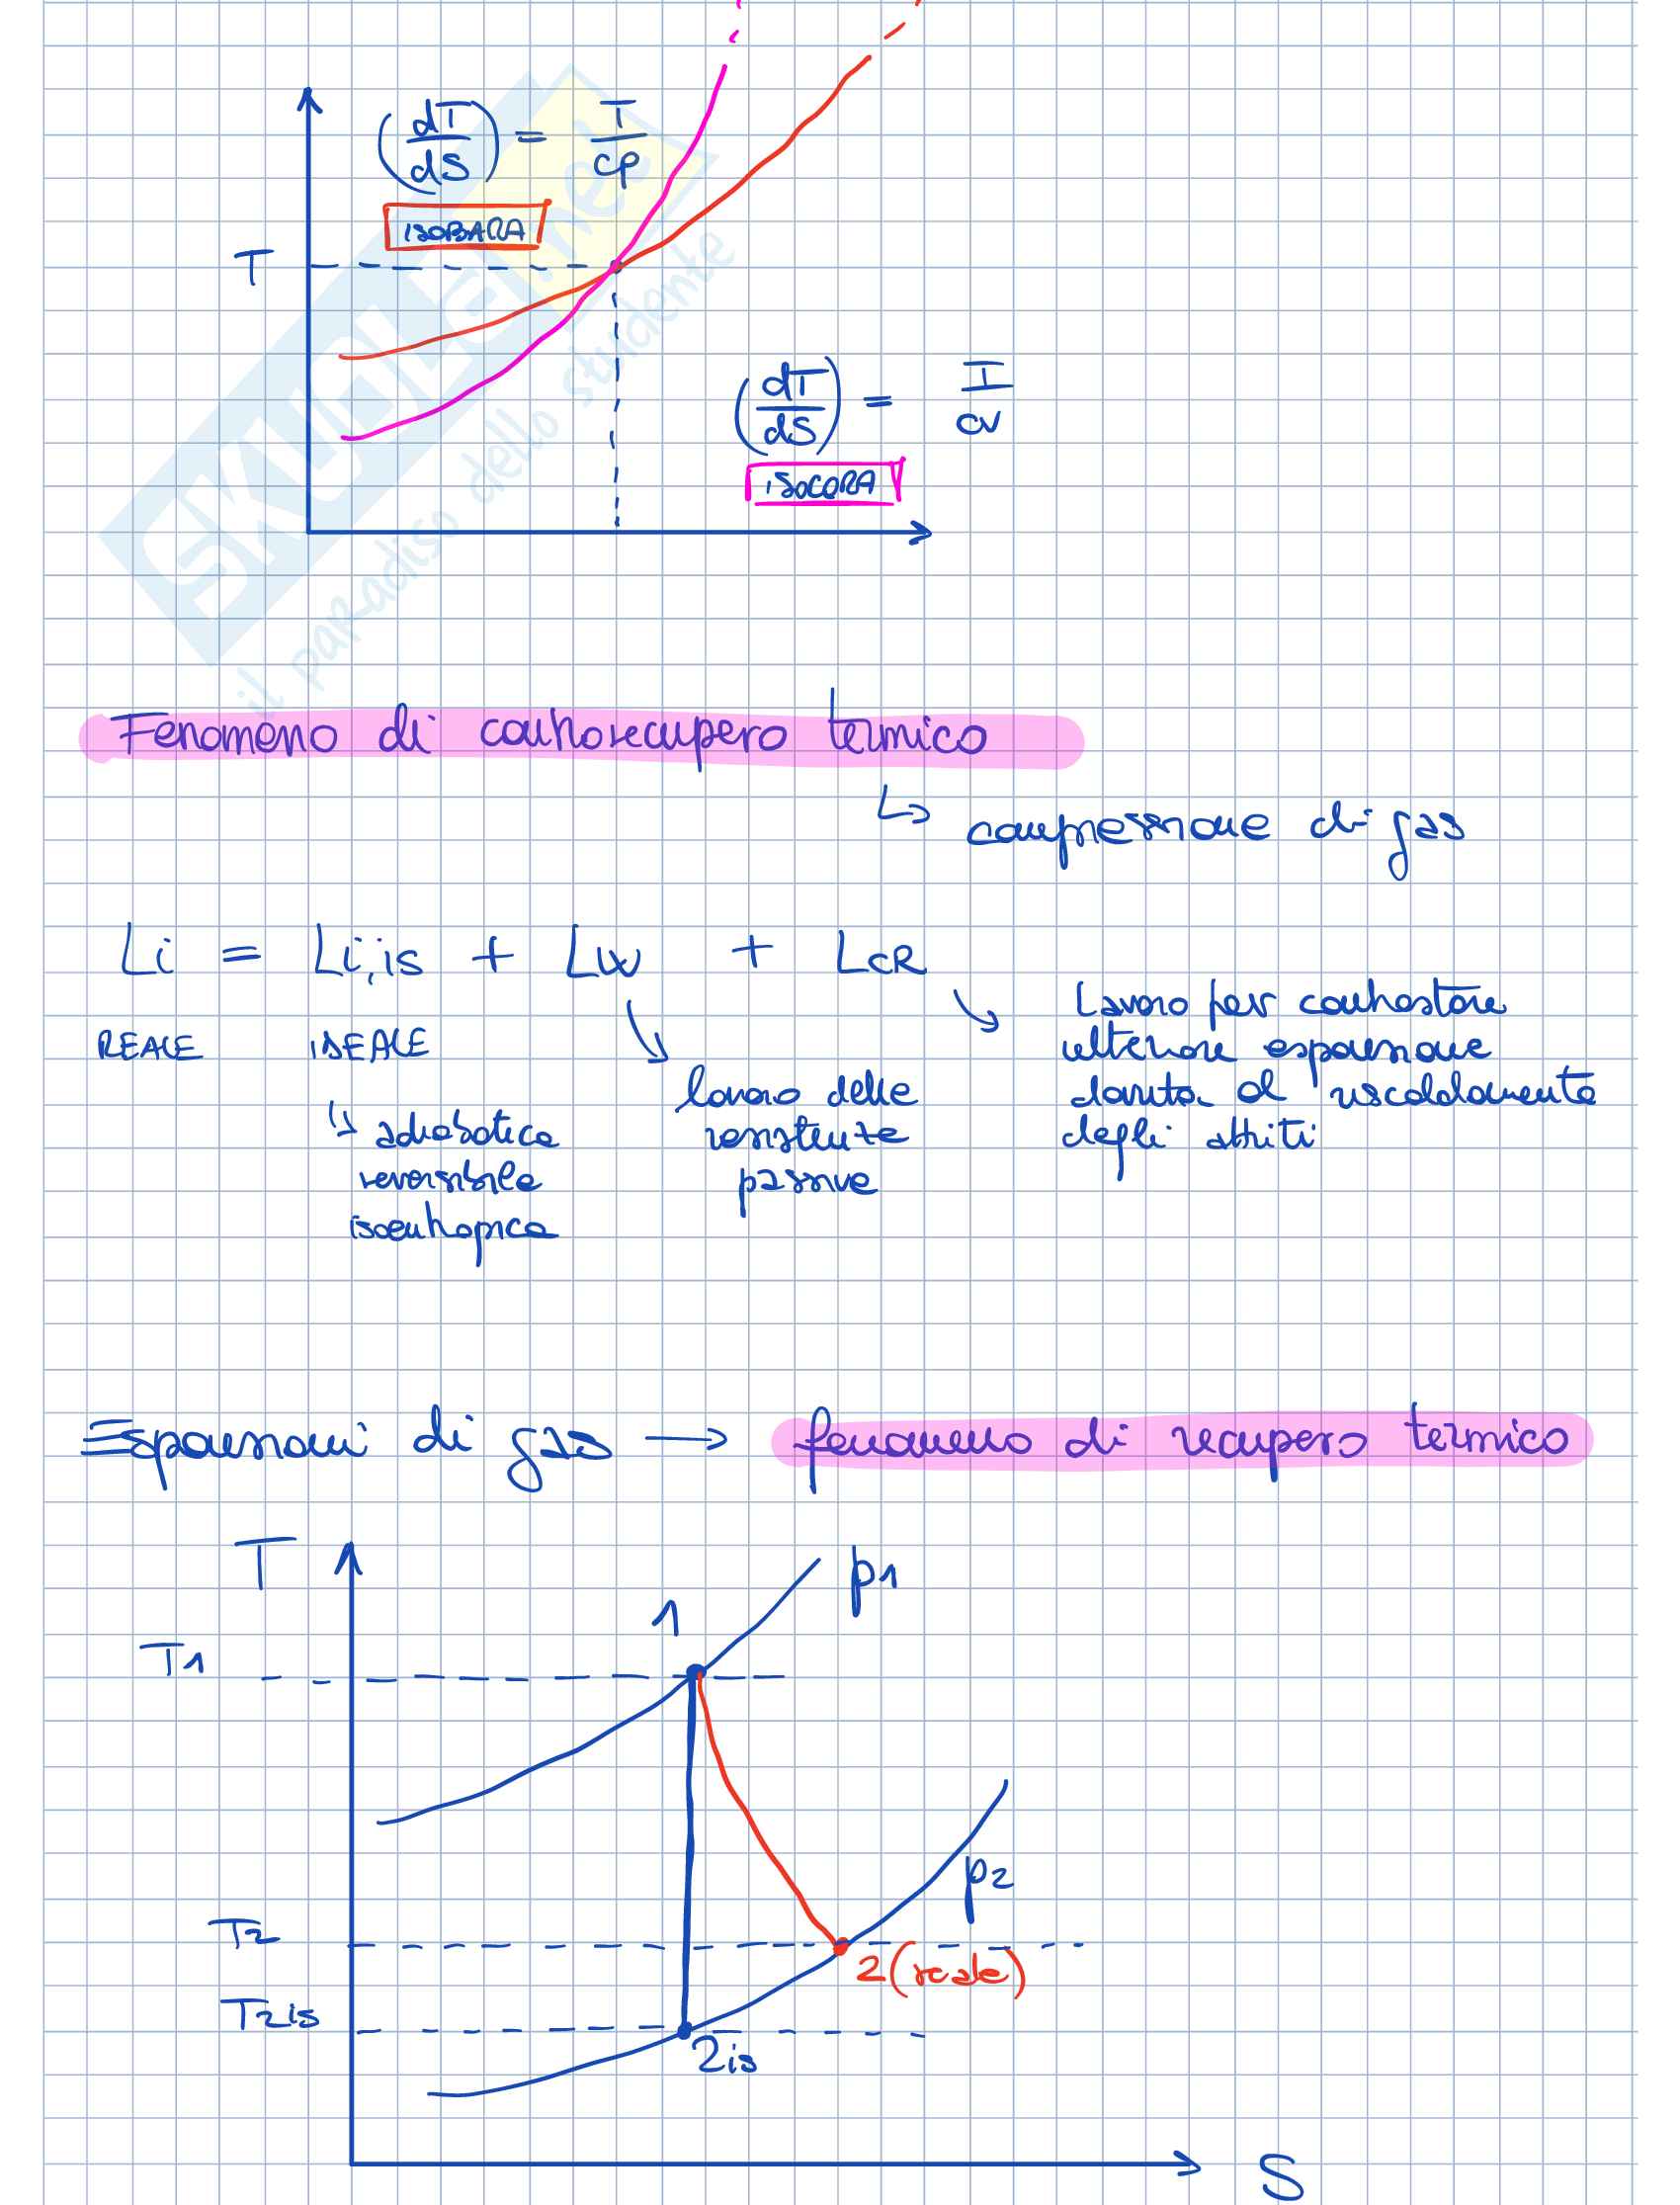 (dT/dS) = T/cp
ISOBARA
T
(dT/dS) = T/cv
ISOCORA
SKUOLA.net
il paradiso dello studente
Fenomeno di controrecupero termico
↳ compressione di gas
Li = Li,is + Lw + LCR
REALE IDEALE
↳ adiabatica
reversibile
isoentropica
lavoro delle
resistenze
passive
Lavoro per contrastare
ulteriore espansione
dovuta al riscaldamento
degli attriti
Espansioni di gas → fenomeno di recupero termico
T
p1
1
T1
p2
T2
2 (reale)
T2is
2is
S